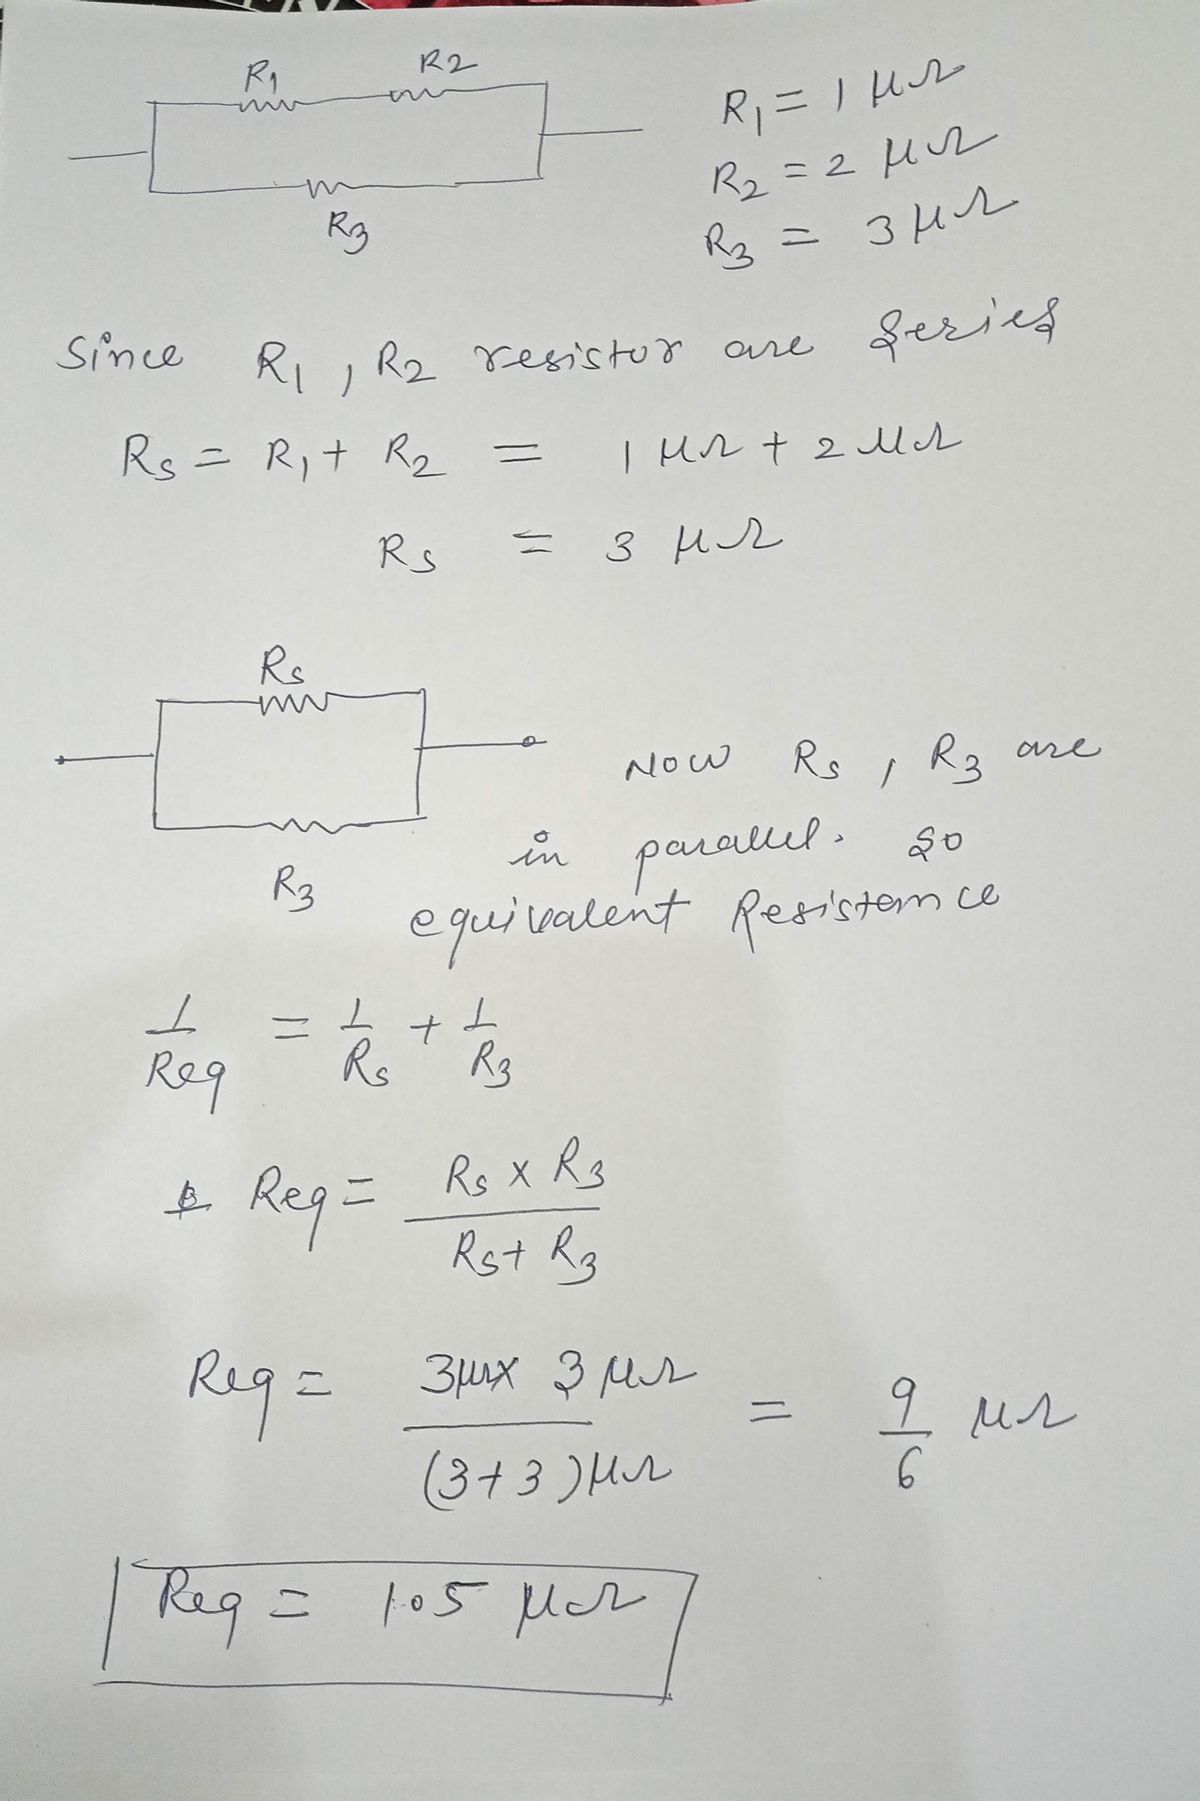 R1 R2
R3
R1 = 1 μΩ
R2 = 2 μΩ
R3 = 3 μΩ
Since R1, R2 resistor are Series
Rs = R1 + R2 = 1 μΩ + 2 μΩ
Rs = 3 μΩ
Rs
R3
Now Rs, R3 are
in parallel. So
equivalent Resistance
1/Req = 1/Rs + 1/R3
Req = Rs x R3 / Rs + R3
Req = 3μΩ x 3 μΩ / (3+3) μΩ = 9/6 μΩ
Req = 1.5 μΩ